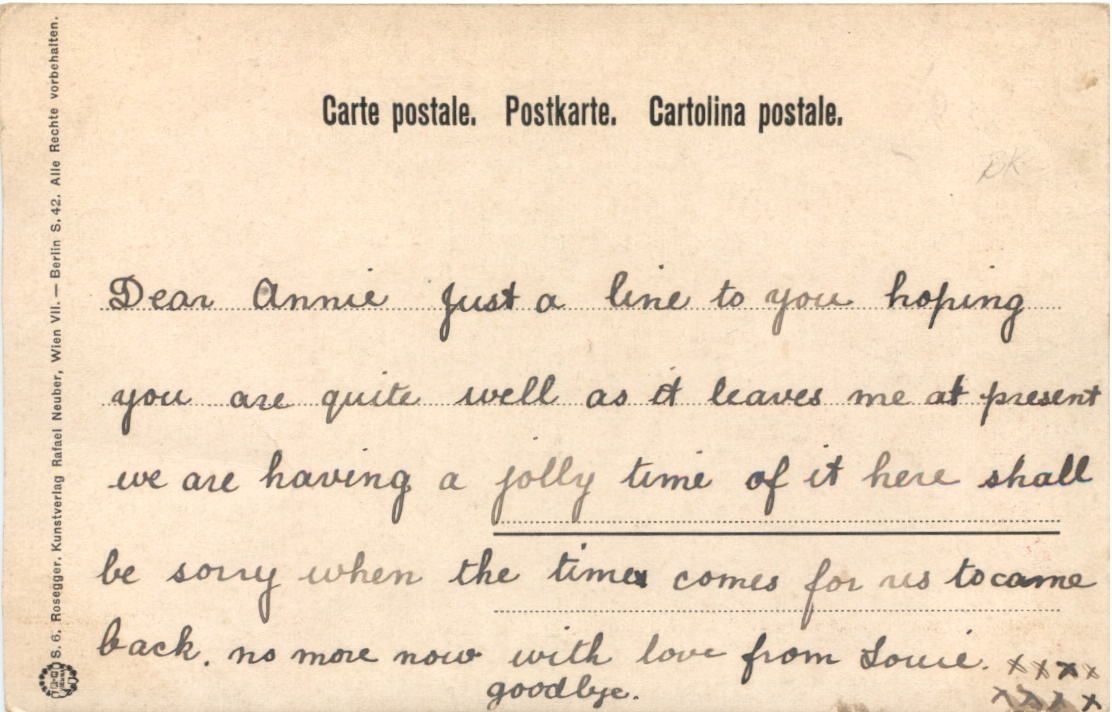 Carte postale. Postkarte. Cartolina postale.
BK
Dear Annie Just a line to you hoping
you are quite well as it leaves me at present
we are having a jolly time of it here shall
be sorry when the time comes for us to came
back. no more now with love from Louie. xxxx
goodbye. xxxx
S. 6. Rosegger. Kunstverlag Rafael Neuber, Wien VII. — Berlin S. 42. Alle Rechte vorbehalten.